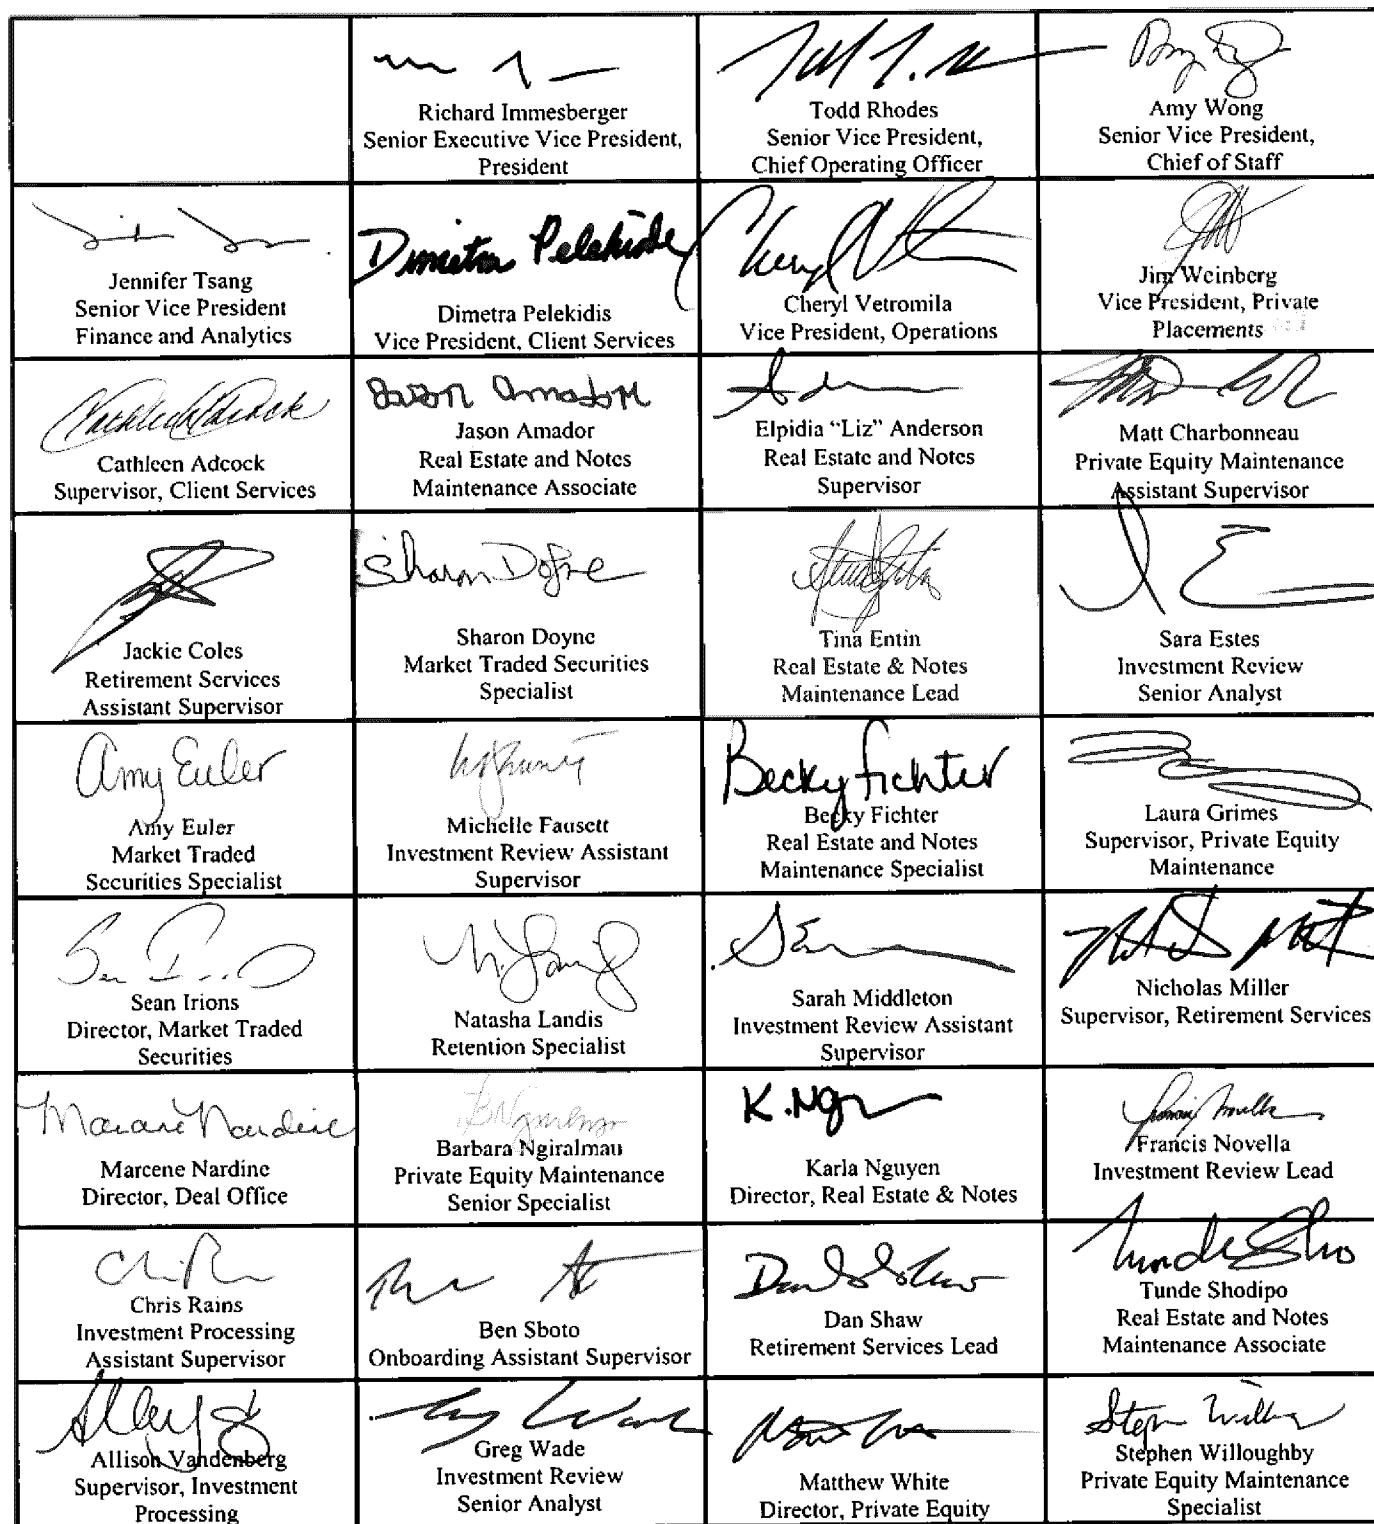 Richard Immesberger
Senior Executive Vice President,
President
Todd Rhodes
Senior Vice President,
Chief Operating Officer
Amy Wong
Senior Vice President,
Chief of Staff
Jennifer Tsang
Senior Vice President
Finance and Analytics
Dimetra Pelekidis
Vice President, Client Services
Cheryl Vetromila
Vice President, Operations
Jim Weinberg
Vice President, Private
Placements
Cathleen Adcock
Supervisor, Client Services
Jason Amador
Jason Amador
Real Estate and Notes
Maintenance Associate
Elpidia “Liz” Anderson
Real Estate and Notes
Supervisor
Matt Charbonneau
Private Equity Maintenance
Assistant Supervisor
Jackie Coles
Retirement Services
Assistant Supervisor
Sharon Doyne
Sharon Doyne
Market Traded Securities
Specialist
Tina Entin
Real Estate & Notes
Maintenance Lead
Sara Estes
Investment Review
Senior Analyst
Amy Euler
Amy Euler
Market Traded
Securities Specialist
Michelle Fausett
Investment Review Assistant
Supervisor
Becky Fichter
Becky Fichter
Real Estate and Notes
Maintenance Specialist
Laura Grimes
Supervisor, Private Equity
Maintenance
Sean Irions
Director, Market Traded
Securities
Natasha Landis
Retention Specialist
Sarah Middleton
Investment Review Assistant
Supervisor
Nicholas Miller
Supervisor, Retirement Services
Marcene Nardine
Director, Deal Office
Barbara Ngiralmau
Private Equity Maintenance
Senior Specialist
K. Ng
Karla Nguyen
Director, Real Estate & Notes
Francis Novella
Investment Review Lead
Chris Rains
Investment Processing
Assistant Supervisor
Ben Sboto
Onboarding Assistant Supervisor
Dan Shaw
Retirement Services Lead
Tunde Shodipo
Real Estate and Notes
Maintenance Associate
Allison Vandenberg
Supervisor, Investment
Processing
Greg Wade
Investment Review
Senior Analyst
Matthew White
Director, Private Equity
Stephen Willoughby
Private Equity Maintenance
Specialist